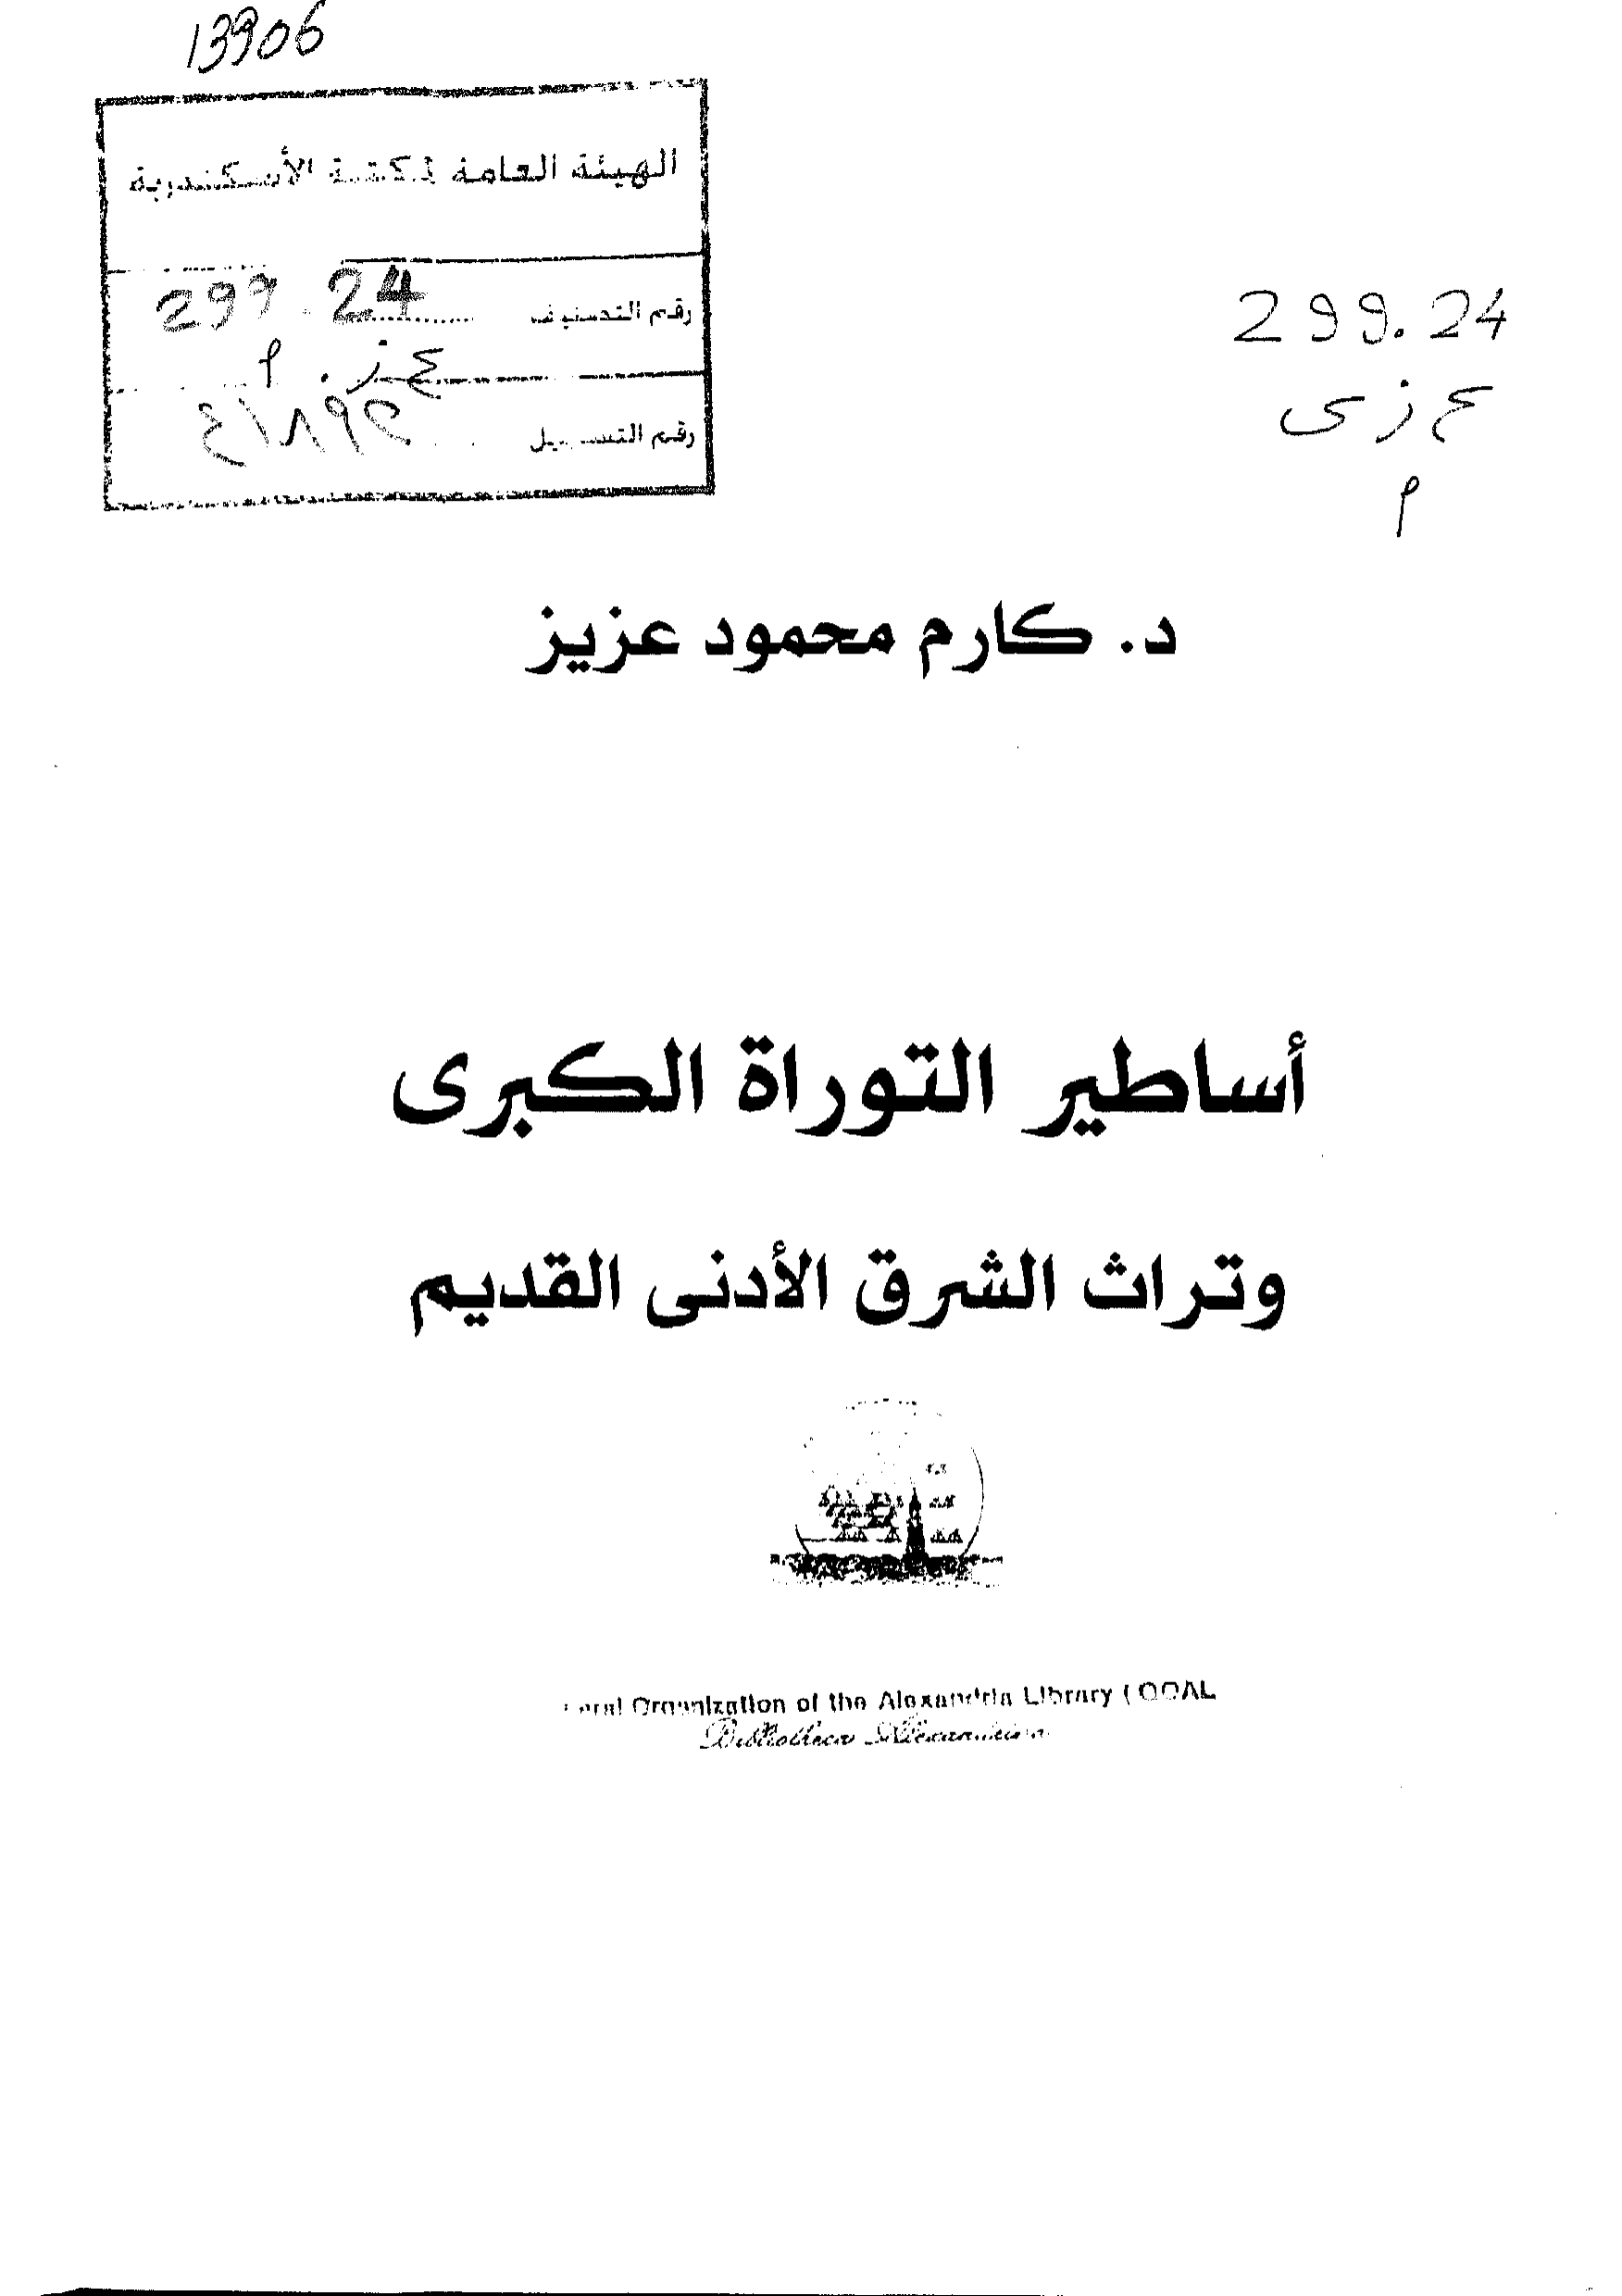 13906
الهيئة العامة لمكتبة الأسكندرية
رقم التصنيف 299.24
رقم التسجيل
299.24
ع زى
م
د. كارم محمود عزيز
أساطير التوراة الكبرى
وتراث الشرق الأدنى القديم
Organization of the Alexandria Library (GOAL
Bibliotheca Alexandrina